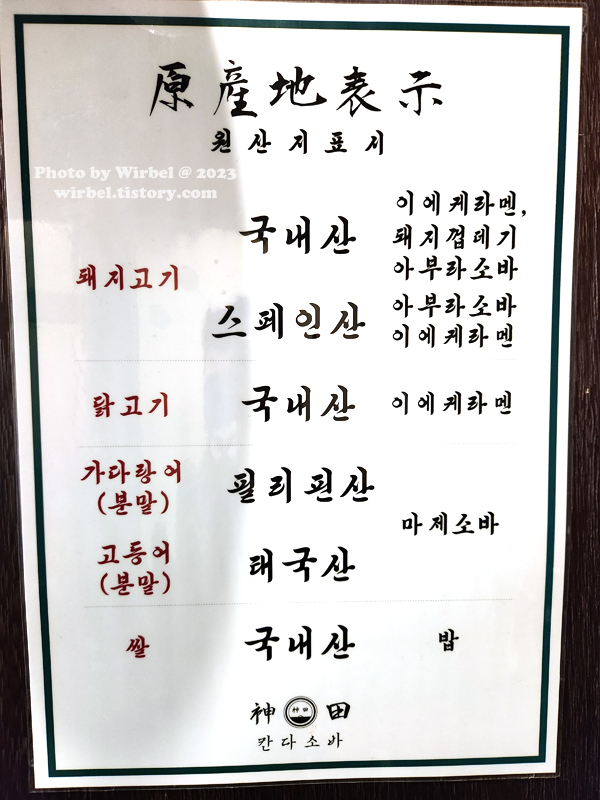 原産地表示
원산지표시
Photo by Wirbel @ 2023
wirbel.tistory.com
돼지고기
국내산
이에케라멘,
돼지껍데기
아부라소바
스페인산
아부라소바
이에케라멘
닭고기
국내산
이에케라멘
가다랑어
(분말)
필리핀산
마제소바
고등어
(분말)
태국산
쌀
국내산
밥
神 神田 田
칸다소바